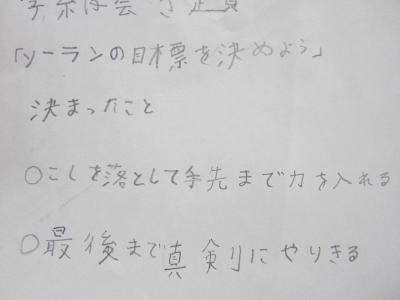 「ソーランの目標を決めよう」
決まったこと
○こしを落として手先まで力を入れる
○最後まで真剣にやりきる